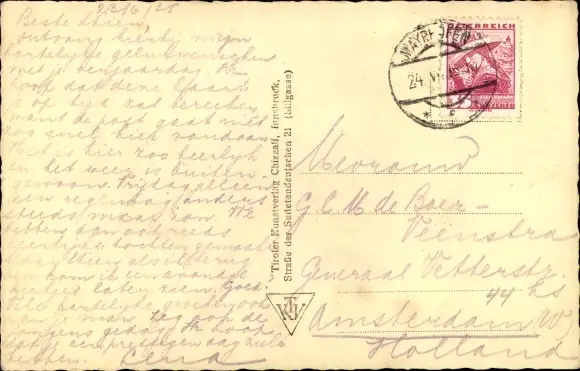 23/6/35
Beste Stien,
ontvang hierbij mijn
hartelijke gelukwenschen
met je verjaardag. Ik
hoop dat deze kaart
op tijd zal bereiken,
want de post gaat niet
zoo snel hier vandaan.
Het is hier zoo heerlijk
en het weer is buiten-
gewoon. Vrijdag alleen
een regendag, anders
steeds maar zon. We
hebben dan ook reeds
heerlijke tochten gemaakt
hier als
kom ik je
later zien. Goed.
hartelijke groeten ook
je man, zeg ook de
jongens gedag. Ik hoop
dat je een prettigen dag zult
hebben. Lena
Tiroler Kunstverlag Chizzali, Innsbruck,
Straße der Sudetendeutschen 21 (Sillgasse)
TKV
MAYRHOFEN
24. VI.
ÖSTERREICH
Mevrouw
G. C. M. de Boer-
Veenstra
Generaal Vetterstr.
44 hs
Amsterdam W,
Holland